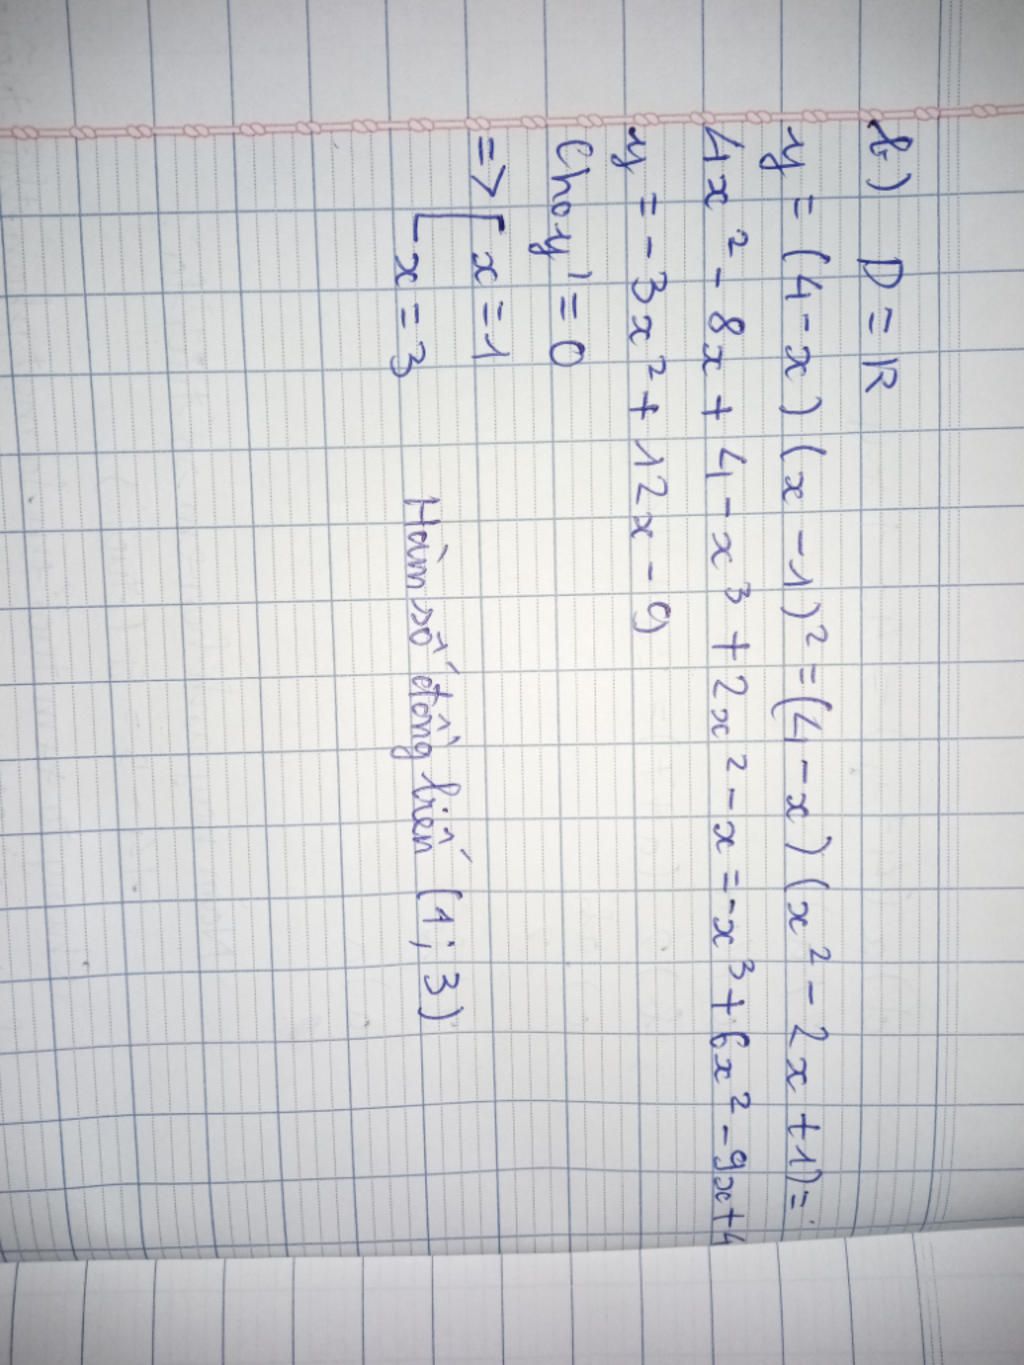 b) D = R
y = (4 - x) (x - 1)² = (4 - x) (x² - 2x + 1) =
4x² - 8x + 4 - x³ + 2x² - x = -x³ + 6x² - 9x + 4
y = - 3x² + 12x - 9
Cho y' = 0
=> [ x = 1
x = 3
Hàm số đồng biến (1; 3)